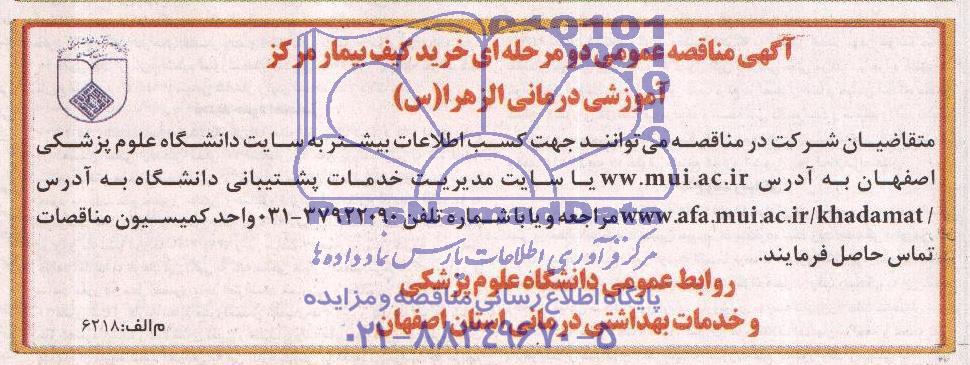 آگهی مناقصه عمومی دو مرحله ای خرید کیف بیمار مرکز
آموزشی درمانی الزهرا(س)
متقاضیان شرکت در مناقصه می توانند جهت کسب اطلاعات بیشتر به سایت دانشگاه علوم پزشکی
اصفهان به آدرس ww.mui.ac.ir یا سایت مدیریت خدمات پشتیبانی دانشگاه به آدرس
www.afa.mui.ac.ir/khadamat/ مراجعه و یا با شماره تلفن ۳۷۹۲۲۰۹۰-۰۳۱ واحد کمیسیون مناقصات
تماس حاصل فرمایند.
مرکز فرآوری اطلاعات پارس نماد داده ها
روابط عمومی دانشگاه علوم پزشکی
پایگاه اطلاع رسانی مناقصه و مزایده
و خدمات بهداشتی درمانی استان اصفهان
۰۲۱-۸۸۳۴۹۶۷۰-۵
م الف: ۶۲۱۸